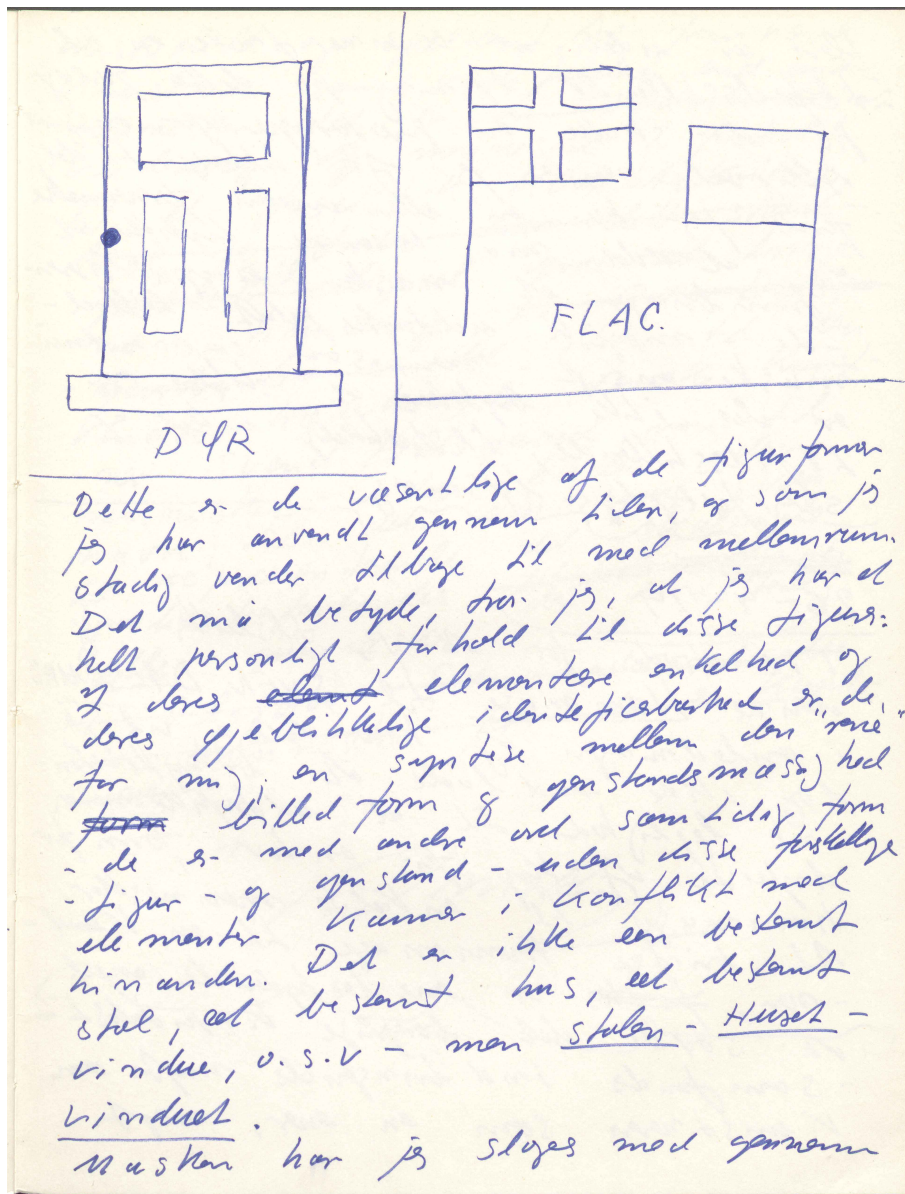 DØR
FLAG.
Dette er de væsentlige af de figurformer
jeg har anvendt gennem tiden, og som jeg
stadig vender tilbage til med mellemrum.
Det må betyde, tror jeg, at jeg har et
helt personligt forhold til disse figurer:
I deres elemt elementære enkelhed og
deres øjeblikkelige identificerbarhed er de,
for mig, en syntese mellem den "rene"
form billedform og genstandsmæssighed
- de er med andre ord samtidig form
- figur - og genstand - uden disse forskellige
elementer kommer i konflikt med
hinanden. Det er ikke een bestemt
stol, eet bestemt hus, eet bestemt
vindue, o.s.v - men stolen - Huset -
vinduet.
Masken har jeg sloges med gennem